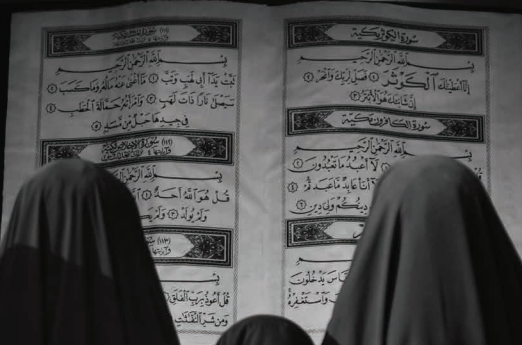 سُورَةُ الْكَوْثَرِ مَكِّيَّة
بِسْمِ اللَّهِ الرَّحْمَٰنِ الرَّحِيمِ
إِنَّا أَعْطَيْنَاكَ الْكَوْثَرَ ١ فَصَلِّ لِرَبِّكَ وَانْحَرْ ٢
إِنَّ شَانِئَكَ هُوَ الْأَبْتَرُ ٣
سُورَةُ الْكَافِرُونَ مَكِّيَّة
بِسْمِ اللَّهِ الرَّحْمَٰنِ الرَّحِيمِ
لَا أَعْبُدُ مَا تَعْبُدُونَ ٢
أَنَا عَابِدٌ مَا عَبَدْتُمْ ٤
دِينُكُمْ وَلِيَ دِينِ ٦
يَدْخُلُونَ
وَاسْتَغْفِرْهُ
(١١١)
بِسْمِ اللَّهِ الرَّحْمَٰنِ الرَّحِيمِ
تَبَّتْ يَدَا أَبِي لَهَبٍ وَتَبَّ ١ مَا أَغْنَىٰ عَنْهُ مَالُهُ وَمَا كَسَبَ ٢
سَيَصْلَىٰ نَارًا ذَاتَ لَهَبٍ ٣ وَامْرَأَتُهُ حَمَّالَةَ الْحَطَبِ ٤
فِي جِيدِهَا حَبْلٌ مِنْ مَسَدٍ ٥
(١١٢)
بِسْمِ اللَّهِ الرَّحْمَٰنِ الرَّحِيمِ
قُلْ هُوَ اللَّهُ أَحَدٌ ١
وَلَمْ يُولَدْ ٣
(١١٣)
بِسْمِ
قُلْ أَعُوذُ بِرَبِّ الْفَلَقِ ١
وَمِنْ شَرِّ النَّفَّاثَاتِ